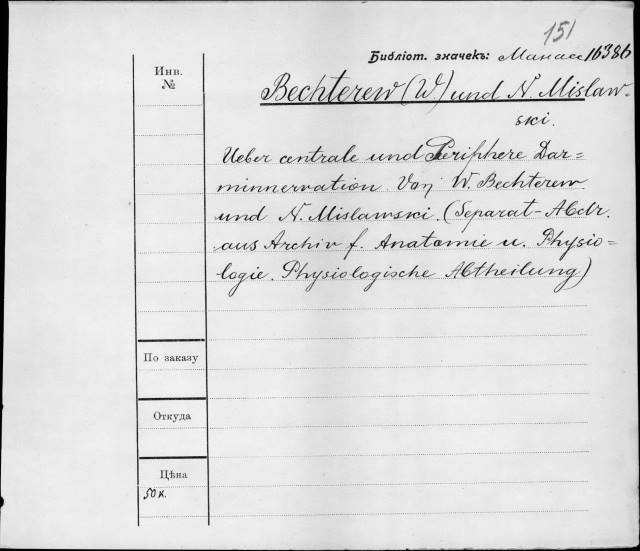 151
Библіот. значекъ: Манас 16386
Инв.
№
Bechterew (W) und N. Mislaw-
ski.
Ueber centrale und Periphere Dar=
minnervation. Von W. Bechterew
und N. Mislawski. (Separat-Abdr.
aus Archiv f. Anatomie u. Physio=
logie. Physiologische Abtheilung)
По заказу
Откуда
Цѣна
50 к.